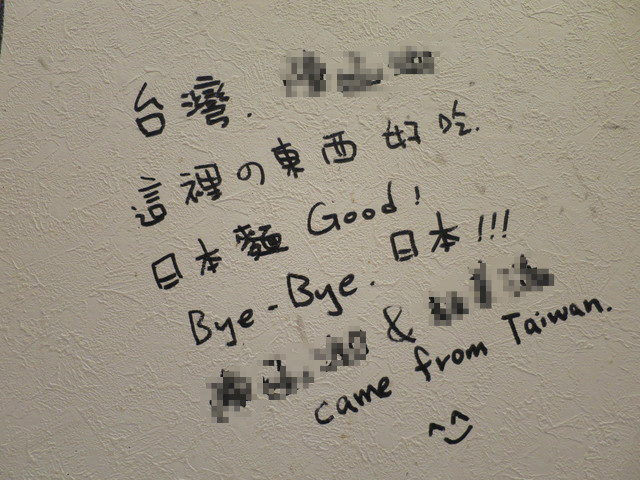 台灣.
這裡の東西好吃.
日本麵 Good!
Bye-Bye. 日本!!!
&
came from Taiwan.
^‿^